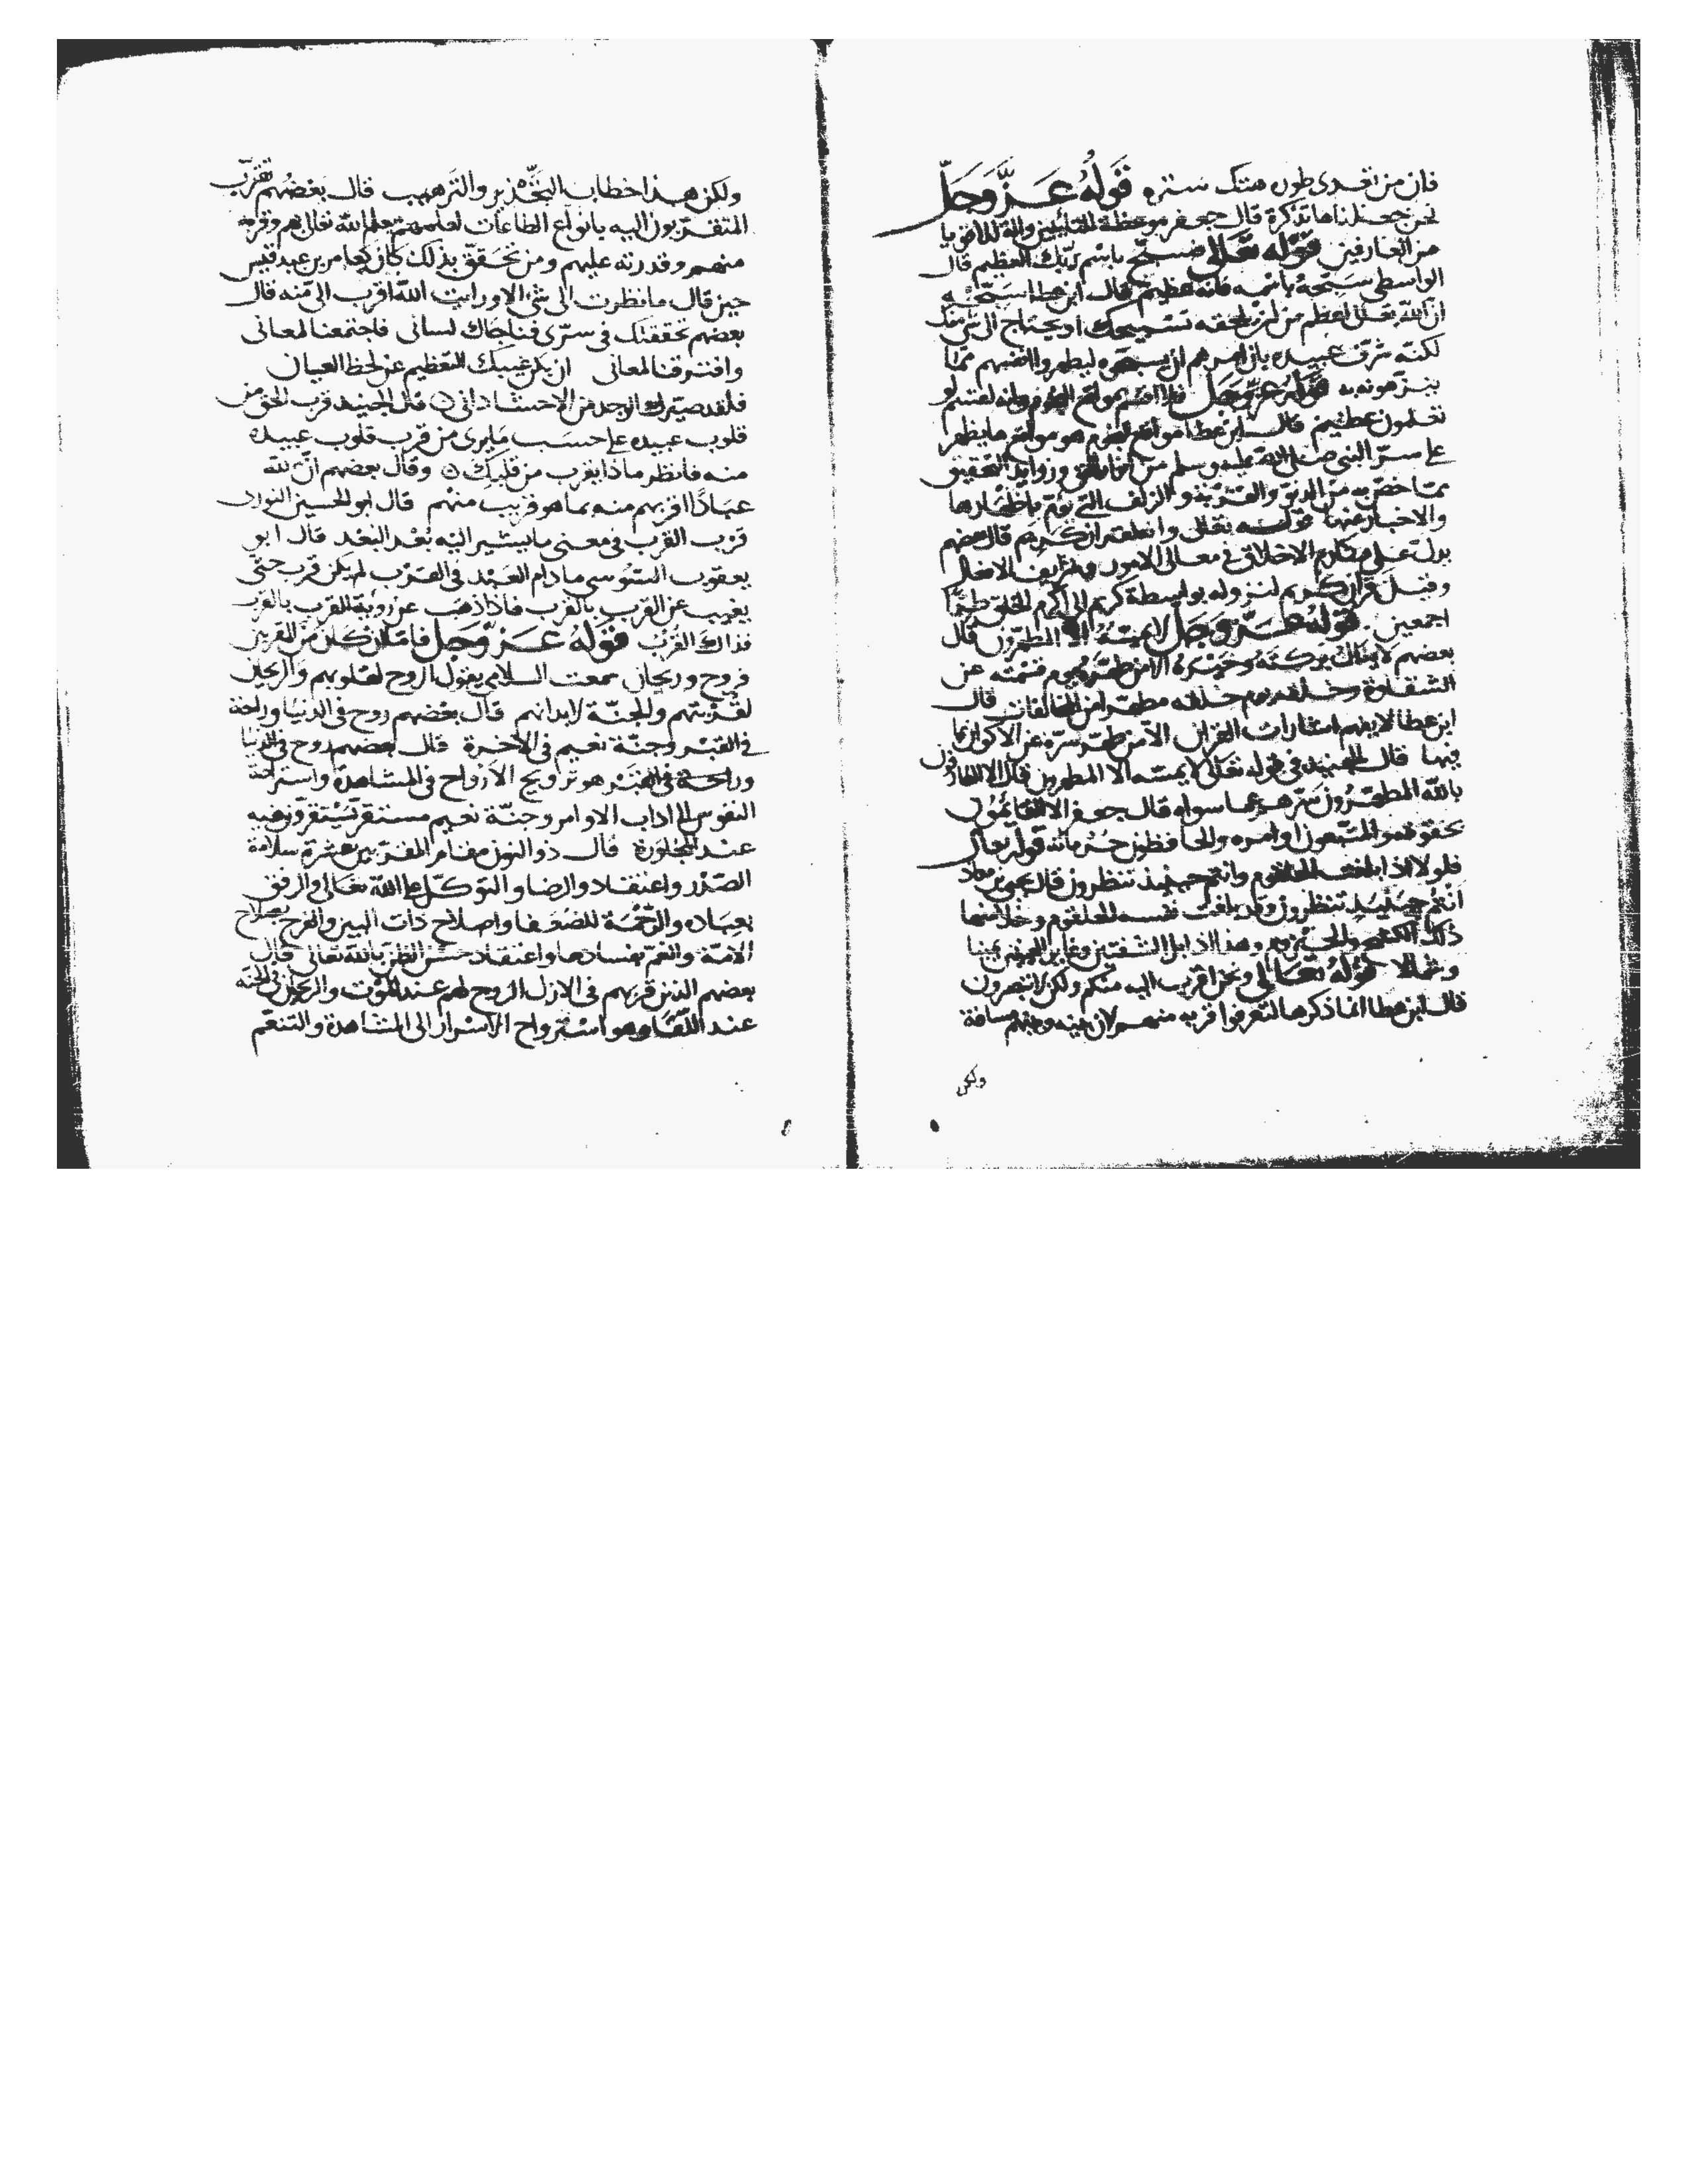 فان من تعدى طوره هتك ستره قوله عز وجل
نحن جعلناها تذكرة قال جعفر موعظة للتائبين وانه للاقويا
من العارفين قوله تعالى فسبح باسم ربك العظيم قال
الواسطى سبحه باسمه فانه عظيم قال ابن عطا سبحه
ان الله تعالى اعظم من ان يلحقه تسبيحك او يحتاج الى شى منك
لكنه شرف عبيده بان امرهم ان يسبحوه ليطهروا انفسهم مما
ينزهونه به قوله عز وجل فلا اقسم بمواقع النجوم وانه لقسم لو
تعلمون عظيم قال ابن عطا مواقع النجوم هو مواقع ما يظهر
على سر النبى صلى الله عليه وسلم من انوار الحق وزوايد التحقيق
مما خص به من الدنو والقربة والزلف التى لم يؤمر باظهارها
والاخبار عنها قوله تعالى وانه لقران كريم قال بعضهم
يدل على مكارم الاخلاق فى معالى الامور وشرايف الافعال
وقيل قران كريم لنزوله بواسطة كريم الى اكرم الخلق طرا
اجمعين قوله عز وجل لا يمسه الا المطهرون قال
بعضهم لا ينال بركته وخيره الا من طهر يوم قسمته عن
الشقاوة وخلقه يوم خلقه مطهرا من المخالفات قال
ابن عطا لا يفهم اشارات القران الا من طهر سره عن الاكوان بما
فيها قال الجنيد فى قوله تعالى لا يمسه الا المطهرون قال الا العارفون
بالله المطهرون سرهم عما سواه قال جعفر الا القائمون
بحقوقه والمتبعون اوامره والحافظون حرماته قوله تعالى
فلولا اذا بلغت الحلقوم وانتم حينئذ تنظرون قال يحيى بن معاذ
انتم حينئيذ تنظرون وقد بلغت نفسه الحلقوم وخلا منها
ذلك وهذا اذ ابل الشفتين وغاير العينين يمينا
وشمالا قوله تعالى ونحن اقرب اليه منكم ولكن لا تبصرون
قال ابن عطا انما ذكرها لتعرفوا قربه منهم لان بينه وبينهم مسافة
ولكن
ولكن هذا خطاب التحذير والترهيب قال بعضهم تقرب
المتقربون اليه بانواع الطاعات لعلمهم بعلم الله تعالى بهم وقربه
منهم وقدرته عليهم ومن تحقق بذلك كان كعامر بن عبد قيس
حين قال ما نظرت الى شئ الا ورايت الله اقرب الى منه قال
بعضهم تحققتك فى سرى فناجاك لسانى فاجتمعنا لمعانى
وافترقنا لمعانى ان يكن غيبك التعظيم عن لحظ العيان
فلقد صيرك الوجد من الاحشاء دانى ۝ قال الجنيد قرب الحق من
قلوب عبيده على حسب ما يرى من قرب قلوب عبيده
منه فانظر ماذا يقرب من قلبك ۝ وقال بعضهم ان لله
عبادا اقربهم منه بما هو قريب منهم قال ابو الحسين النورى
قرب القرب فى معنى ما يشير اليه بعد البعد قال ابو
يعقوب السوسى ما دام العبد فى القرب لم يكن قرب حتى
يغيب عن القرب بالقرب فاذا ذهب عن روية القرب بالقرب
فذاك القرب قوله عز وجل فاما ان كان من المقربين
فروح وريحان سمعت السلامى يقول الروح لقلوبهم والريحان
لقربتهم والجنة لابدانهم قال بعضهم روح فى الدنيا وراحة
فى القبر وجنة نعيم فى الاخرة قال بعضهم روح فى الدنيا
وراحة فى القبر هو ترويح الارواح فى المشاهدة واستراحة
النفوس الى اداب الاوامر وجنة نعيم مستقر تستقرون فيه
عند المجاورة قال ذو النون مقام المقربين عشرة سلامة
الصدر واعتقاد والرضا والتوكل على الله تعالى والرفق
بعباده والرحمة للضعفا واصلاح ذات البين والفرح بصلاح
الامة والغم بفسادها واعتقاد حسن الظن بالله تعالى قال
بعضهم الذين قربهم فى الازل الروح لهم عند الموت والريحان فى الجنة
عند اللقا وهو استرواح الاسرار الى المشاهدة والتنعم